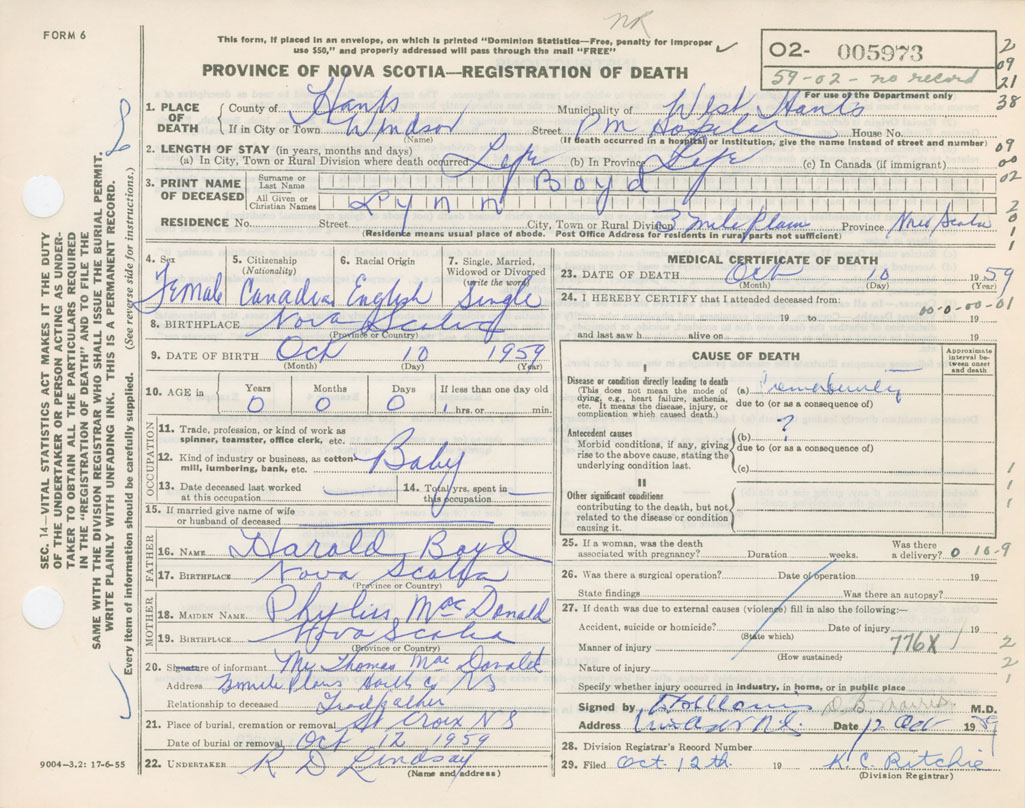 NR
FORM 6
This form, if placed in an envelope, on which is printed "Dominion Statistics—Free, penalty for improper
use $50," and properly addressed will pass through the mail "FREE"
O2- 005973
59-02- no record
For use of the Department only
PROVINCE OF NOVA SCOTIA—REGISTRATION OF DEATH
2
09
21
38
09
00
02
2
0
1
1
1. PLACE OF DEATH
County of Hants Municipality of West Hants
If in City or Town Windsor Street P M Hospital House No.
(Name) (If death occurred in a hospital or institution, give the name instead of street and number)
2. LENGTH OF STAY (in years, months and days)
(a) In City, Town or Rural Division where death occurred Life (b) In Province Life (c) In Canada (if immigrant)
3. PRINT NAME OF DECEASED
Surname or Last Name Boyd
All Given or Christian Names Lynn
RESIDENCE No. Street City, Town or Rural Division 3 mile Plain Province Nova Scotia
(Residence means usual place of abode. Post Office Address for residents in rural parts not sufficient)
4. Sex Female
5. Citizenship (Nationality) Canadian
6. Racial Origin English
7. Single, Married, Widowed or Divorced (write the word) Single
8. BIRTHPLACE Nova Scotia
(Province or Country)
9. DATE OF BIRTH Oct 10 1959
(Month) (Day) (Year)
10. AGE in Years Months Days If less than one day old
0 0 0 hrs. or min.
OCCUPATION
11. Trade, profession, or kind of work as
spinner, teamster, office clerk, etc.
12. Kind of industry or business, as cotton
mill, lumbering, bank, etc.
Baby
13. Date deceased last worked
at this occupation
14. Total yrs. spent in
this occupation
15. If married give name of wife
or husband of deceased
FATHER
16. NAME Harold Boyd
17. BIRTHPLACE Nova Scotia
(Province or Country)
MOTHER
18. MAIDEN NAME Phyliss MacDonald
19. BIRTHPLACE Nova Scotia
(Province or Country)
20. Signature of informant Mr Thomas MacDonald
Address 3 mile Plains Hants Co NS
Relationship to deceased
21. Place of burial, cremation or removal St Croix N S
Date of burial or removal Oct 12 1959
22. UNDERTAKER R D Lindsay
(Name and address)
MEDICAL CERTIFICATE OF DEATH
23. DATE OF DEATH Oct 10 1959
(Month) (Day) (Year)
24. I HEREBY CERTIFY that I attended deceased from:
00-0-00-01
19 to 19
and last saw h alive on 19
CAUSE OF DEATH
Approximate interval between onset and death
I
Disease or condition directly leading to death
(This does not mean the mode of
dying, e.g., heart failure, asthenia,
etc. It means the disease, injury, or
complication which caused death.)
(a) Prematurity
due to (or as a consequence of)
Antecedent causes
Morbid conditions, if any, giving
rise to the above cause, stating the
underlying condition last.
(b) ?
due to (or as a consequence of)
(c)
II
Other significant conditions
contributing to the death, but not
related to the disease or condition
causing it.
1
1
1
25. If a woman, was the death
associated with pregnancy? Duration weeks. Was there
a delivery? 0 16-9
26. Was there a surgical operation? Date of operation 19
State findings Was there an autopsy?
27. If death was due to external causes (violence) fill in also the following:—
Accident, suicide or homicide? Date of injury 19
(State which)
Manner of injury 776X
(How sustained)
Nature of injury
2
2
1
Specify whether injury occurred in industry, in home, or in public place
Signed by M.D.
Address Windsor N.S. Date 12 Oct 1959
28. Division Registrar's Record Number
29. Filed Oct 12th 19 K. C. Ritchie
(Division Registrar)
SEC. 14—VITAL STATISTICS ACT MAKES IT THE DUTY
OF THE UNDERTAKER OR PERSON ACTING AS UNDER-
TAKER TO OBTAIN ALL THE PARTICULARS REQUIRED
IN THE "REGISTRATION OF DEATH" AND TO FILE THE
SAME WITH THE DIVISION REGISTRAR WHO SHALL ISSUE THE BURIAL PERMIT.
WRITE PLAINLY WITH UNFADING INK. THIS IS A PERMANENT RECORD.
Every item of information should be carefully supplied. (See reverse side for instructions.)
9004—3.2: 17-6-55